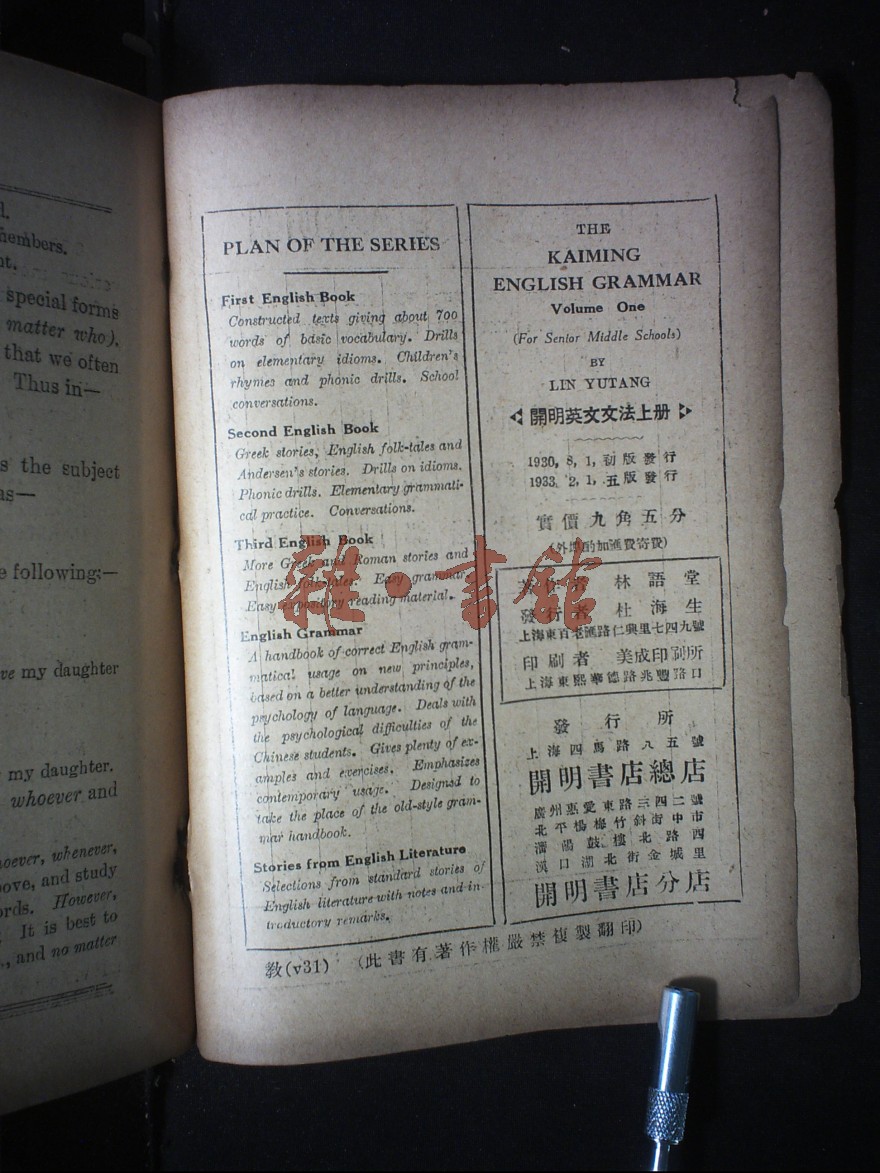 l.
members.
nt.
special forms
matter who).
that we often
Thus in—
s the subject
as—
e following:—
ve my daughter
my daughter.
whoever and
hoever, whenever,
ove, and study
ords. However,
It is best to
., and no matter
PLAN OF THE SERIES
First English Book
Constructed texts giving about 700
words of basic vocabulary. Drills
on elementary idioms. Children's
rhymes and phonic drills. School
conversations.
Second English Book
Greek stories, English folk-tales and
Andersen's stories. Drills on idioms.
Phonic drills. Elementary grammati-
cal practice. Conversations.
Third English Book
More Greek and Roman stories and
English folk-tales. Easy grammar.
Easy expository reading material.
English Grammar
A handbook of correct English gram-
matical usage on new principles,
based on a better understanding of the
psychology of language. Deals with
the psychological difficulties of the
Chinese students. Gives plenty of ex-
amples and exercises. Emphasizes
contemporary usage. Designed to
take the place of the old-style gram-
mar handbook.
Stories from English Literature
Selections from standard stories of
English literature with notes and in-
troductory remarks.
THE
KAIMING
ENGLISH GRAMMAR
Volume One
(For Senior Middle Schools)
BY
LIN YUTANG
開明英文文法上册
1930, 8, 1, 初版發行
1933, 2, 1, 五版發行
實價九角五分
(外埠酌加滙費寄費)
著作者 林語堂
發行者 杜海生
上海東百老滙路仁興里七四九號
印刷者 美成印刷所
上海東熙華德路兆豐路口
發行所
上海四馬路八五號
開明書店總店
廣州惠愛東路三四二號
北平楊梅竹斜街中市
瀋陽鼓樓北路西
漢口湖北街金城里
開明書店分店
教(v31) (此書有著作權嚴禁複製翻印)
雜·書館